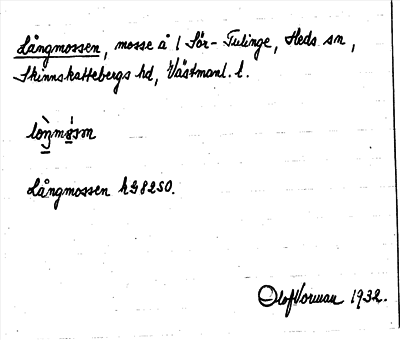 Långmossen, mosse å 1 Sör-Tulinge, Heds sn,
Skinnskattebergs hd, Västmanl. l.
Långmossen hg 8250.
Olof Norman 1932.